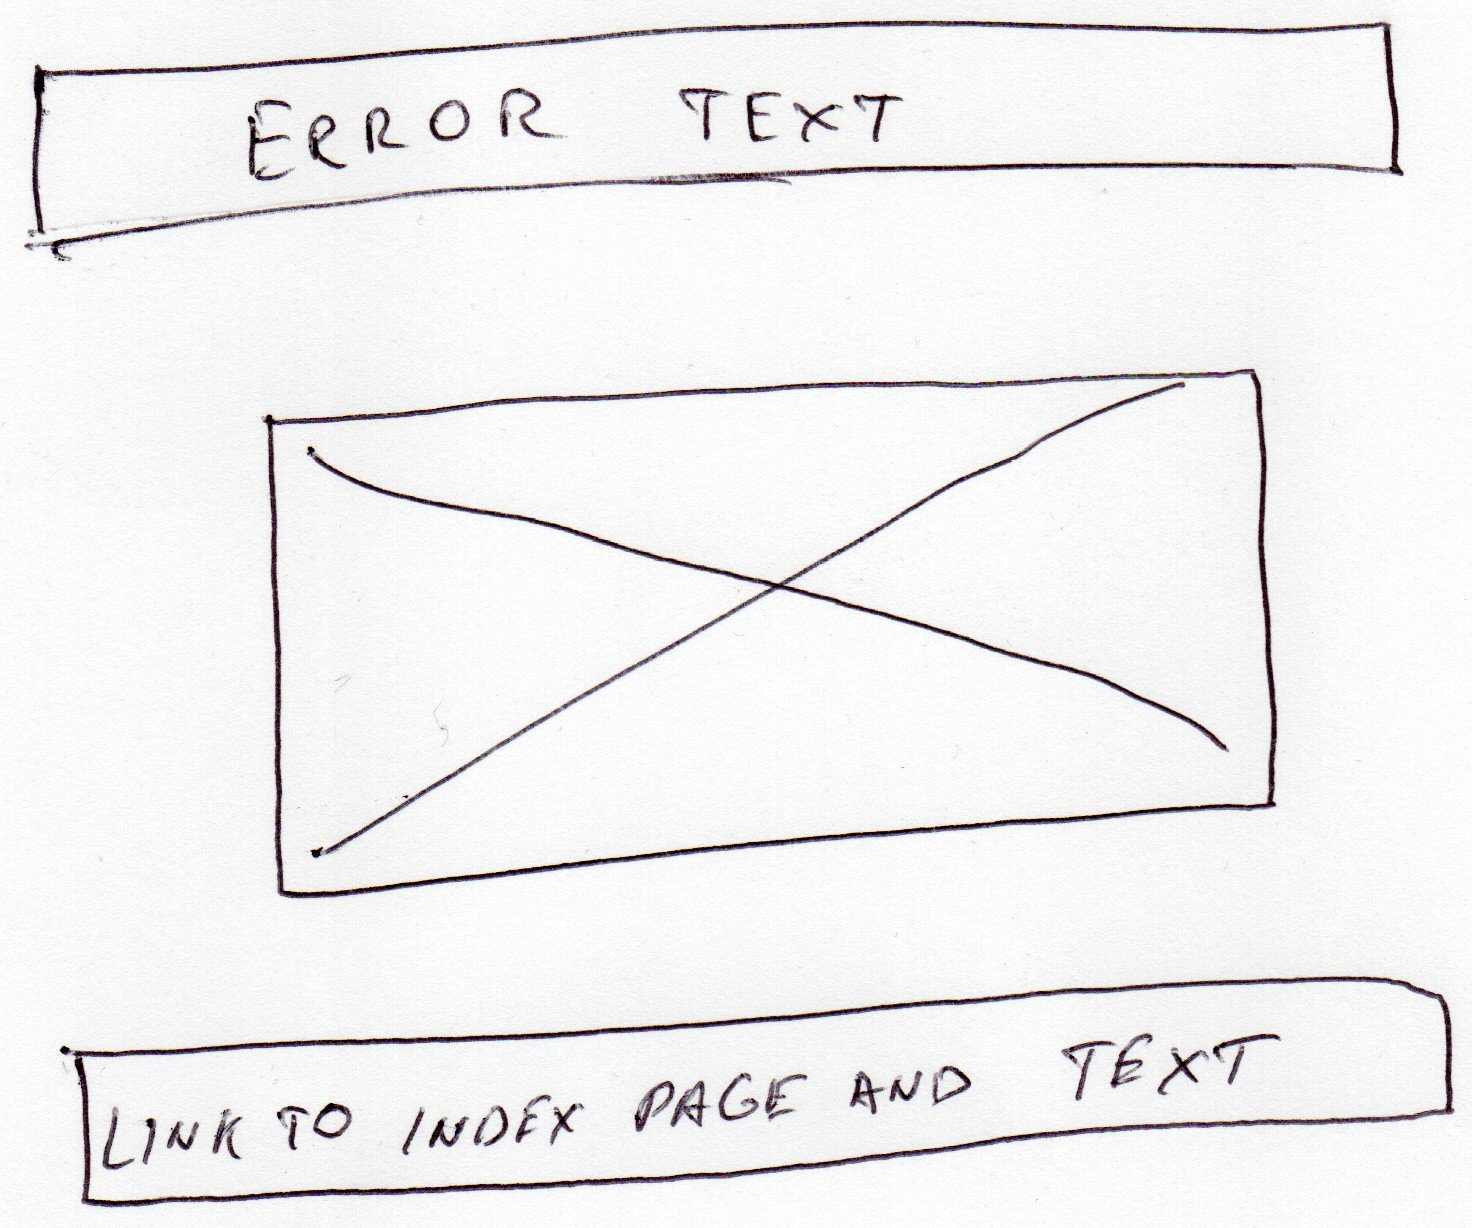 ERROR TEXT
LINK TO INDEX PAGE AND TEXT